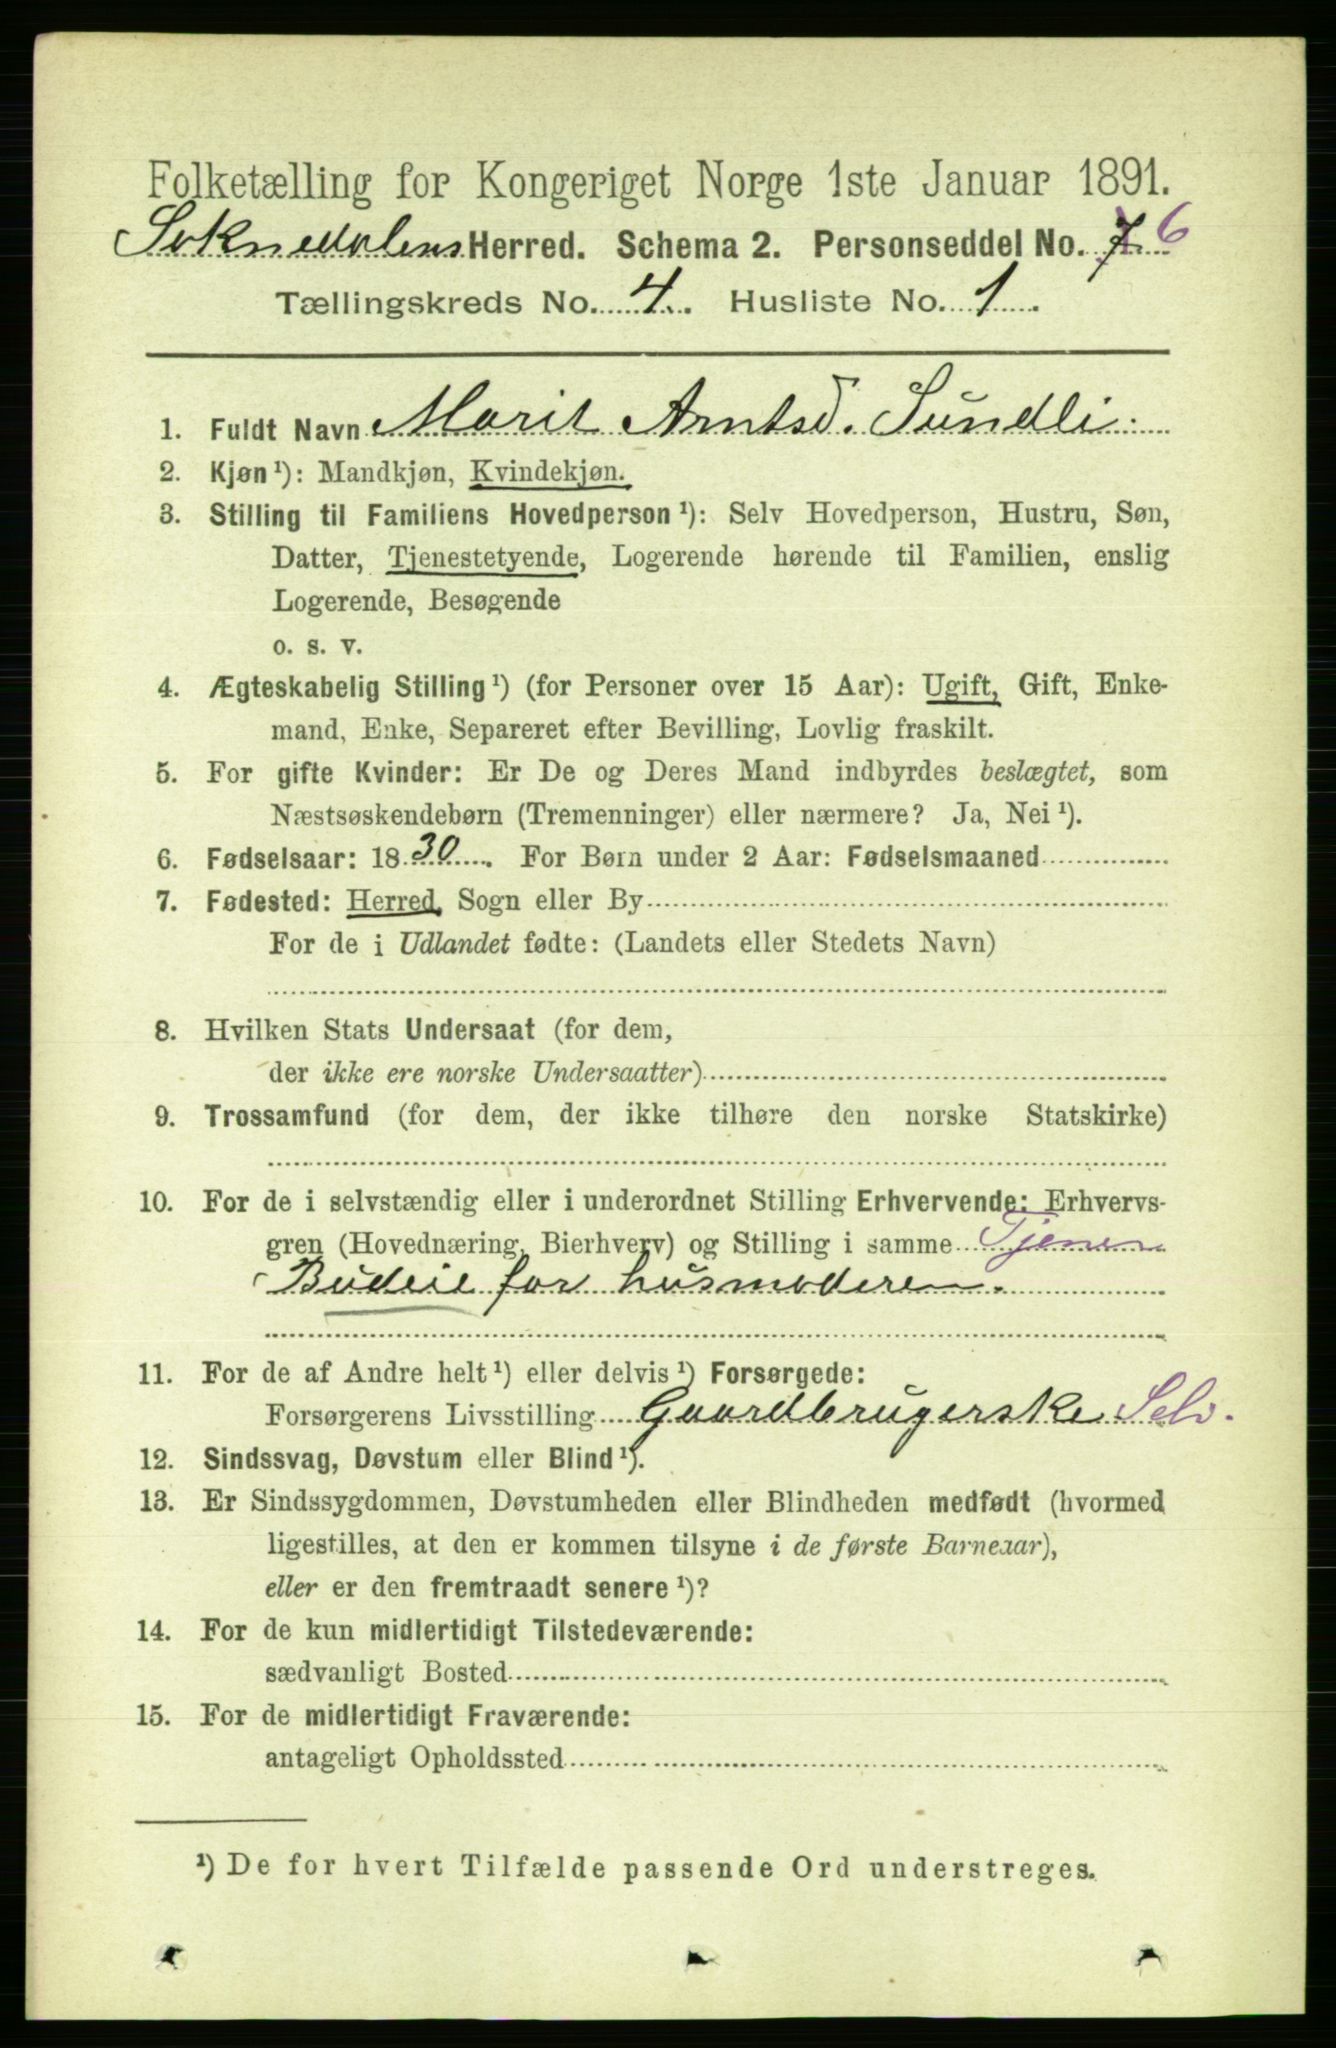 Folketælling for Kongeriget Norge 1ste Januar 1891.
Soknedalens Herred. Schema 2. Personseddel No. 7 6
Tællingskreds No. 4. Husliste No. 1.
1. Fuldt Navn Marit Arntsd. Sundli.
2. Kjøn ¹): Mandkjøn, Kvindekjøn.
3. Stilling til Familiens Hovedperson ¹): Selv Hovedperson, Hustru, Søn,
Datter, Tjenestetyende, Logerende hørende til Familien, enslig
Logerende, Besøgende
o. s. v.
4. Ægteskabelig Stilling ¹) (for Personer over 15 Aar): Ugift, Gift, Enke-
mand, Enke, Separeret efter Bevilling, Lovlig fraskilt.
5. For gifte Kvinder: Er De og Deres Mand indbyrdes beslægtet, som
Næstsøskendebørn (Tremenninger) eller nærmere? Ja, Nei ¹).
6. Fødselsaar: 1830. For Børn under 2 Aar: Fødselsmaaned
7. Fødested: Herred, Sogn eller By
For de i Udlandet fødte: (Landets eller Stedets Navn)
8. Hvilken Stats Undersaat (for dem,
der ikke ere norske Undersaatter)
9. Trossamfund (for dem, der ikke tilhøre den norske Statskirke)
10. For de i selvstændig eller i underordnet Stilling Erhvervende: Erhvervs-
gren (Hovednæring, Bierhverv) og Stilling i samme Tjener
Budeie for husmoderen.
11. For de af Andre helt ¹) eller delvis ¹) Forsørgede:
Forsørgerens Livsstilling Gaardbrugerske Selv.
12. Sindssvag, Døvstum eller Blind ¹).
13. Er Sindssygdommen, Døvstumheden eller Blindheden medfødt (hvormed
ligestilles, at den er kommen tilsyne i de første Barneaar),
eller er den fremtraadt senere ¹)?
14. For de kun midlertidigt Tilstedeværende:
sædvanligt Bosted
15. For de midlertidigt Fraværende:
antageligt Opholdssted
¹) De for hvert Tilfælde passende Ord understreges.